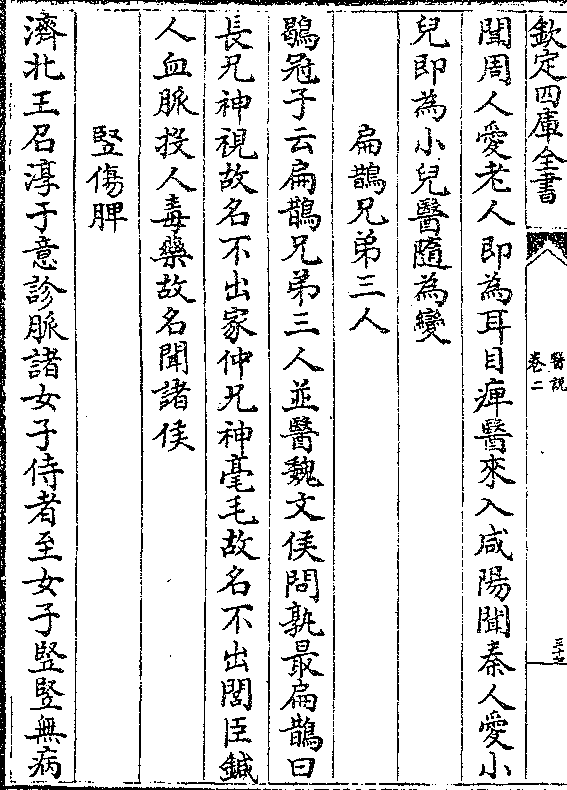 欽定四庫全書
醫說
卷二
三十七
聞周人愛老人即為耳目痺醫來入咸陽聞秦人愛小
兒即為小兒醫隨為變
扁鵲兄弟三人
鶡冠子云扁鵲兄弟三人並醫魏文侯問孰最扁鵲曰
長兄神視故名不出家仲兄神毫毛故名不出閭臣鍼
人血脈投人毒藥故名聞諸侯
竪傷脾
濟北王召淳于意診脈諸女子侍者至女子竪竪無病